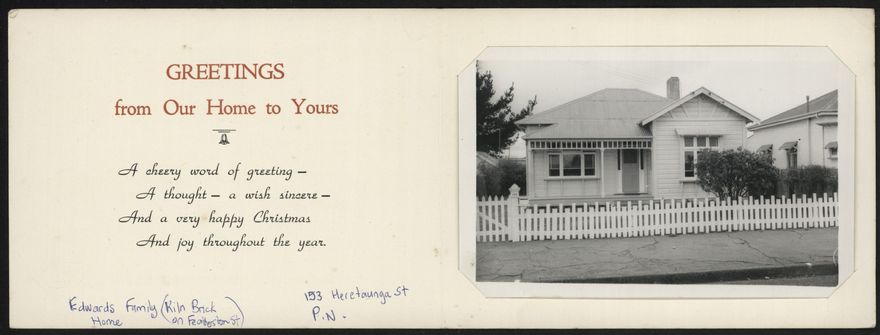 GREETINGS
from Our Home to Yours
A cheery word of greeting —
A thought — a wish sincere —
And a very happy Christmas
And joy throughout the year.
Edwards Family (Kiln Brick
Home on Featherston St)
153 Heretaunga St
P.N.